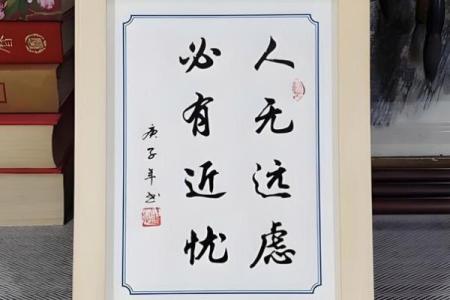 人无远虑
必有近忧
庚子年书